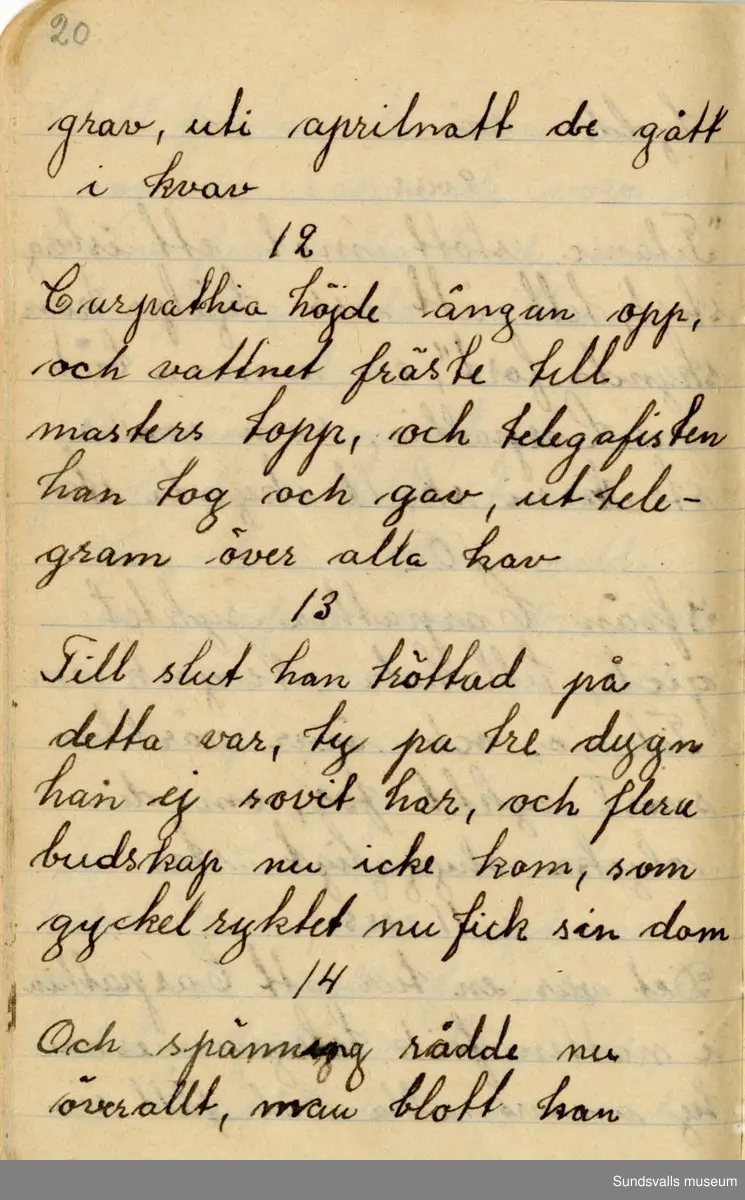 20
grav, uti aprilnatt de gått
i kvav
12
Curpathia höjde ångan opp,
och vattnet fräste till
masters topp, och telegafisten
han tog och gav, ut tele-
gram över alla hav
13
Till slut han tröttad på
detta var, ty pa tre dygn
han ej sovit har, och flera
budskap nu icke kom, som
gyckel ryktet nu fick sin dom
14
Och spänning rådde nu
överallt, man blott kan
Sundsvalls museum